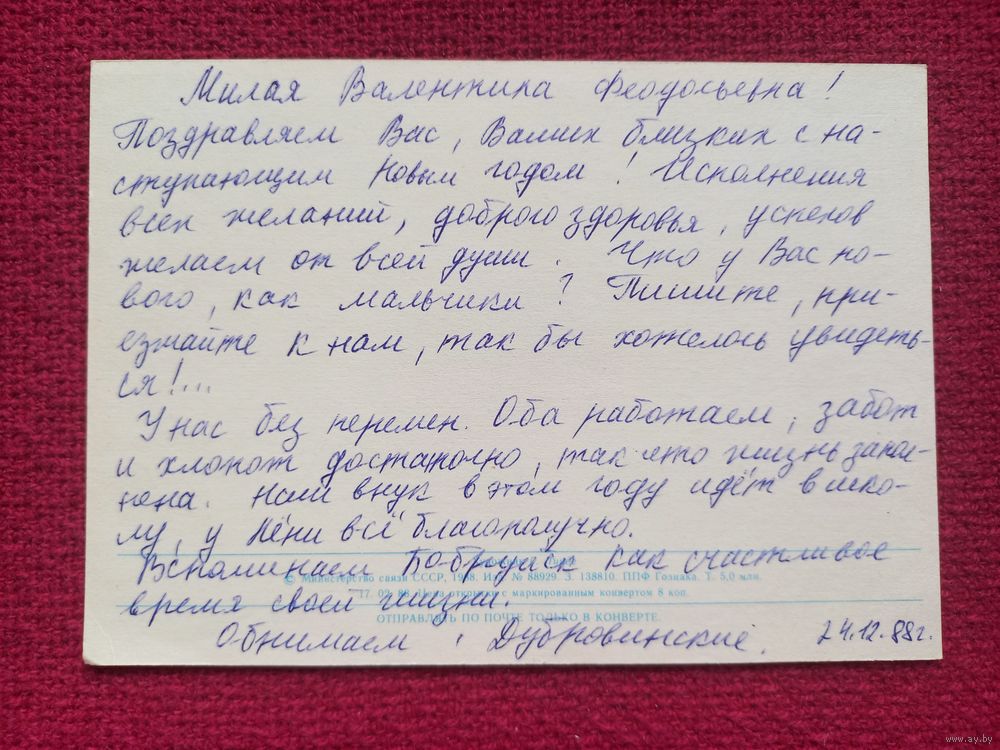 Милая Валентина Феодосьевна!
Поздравляем Вас, Ваших близких с на-
ступающим Новым годом! Исполнения
всех желаний, доброго здоровья, успехов
желаем от всей души. Что у Вас но-
вого, как мальчики? Пишите, при-
езжайте к нам, так бы хотелось увидеть-
ся!...
У нас без перемен. Оба работаем, забот
и хлопот достаточно, так что жизнь запол-
нена. Наш внук в этом году идёт в шко-
лу, у Лёни всё благополучно.
Вспоминаем Бобруйск как счастливое
© Министерство связи СССР, 1988. Изд. № 88929. З. 138810. ППФ Гознака. Т. 5,0 млн.
17. 02. 88. Цена открытки с маркированным конвертом 8 коп.
время своей жизни.
ОТПРАВЛЯТЬ ПО ПОЧТЕ ТОЛЬКО В КОНВЕРТЕ.
Обнимаем, Дубровинские. 24.12.88г.
www.ay.by